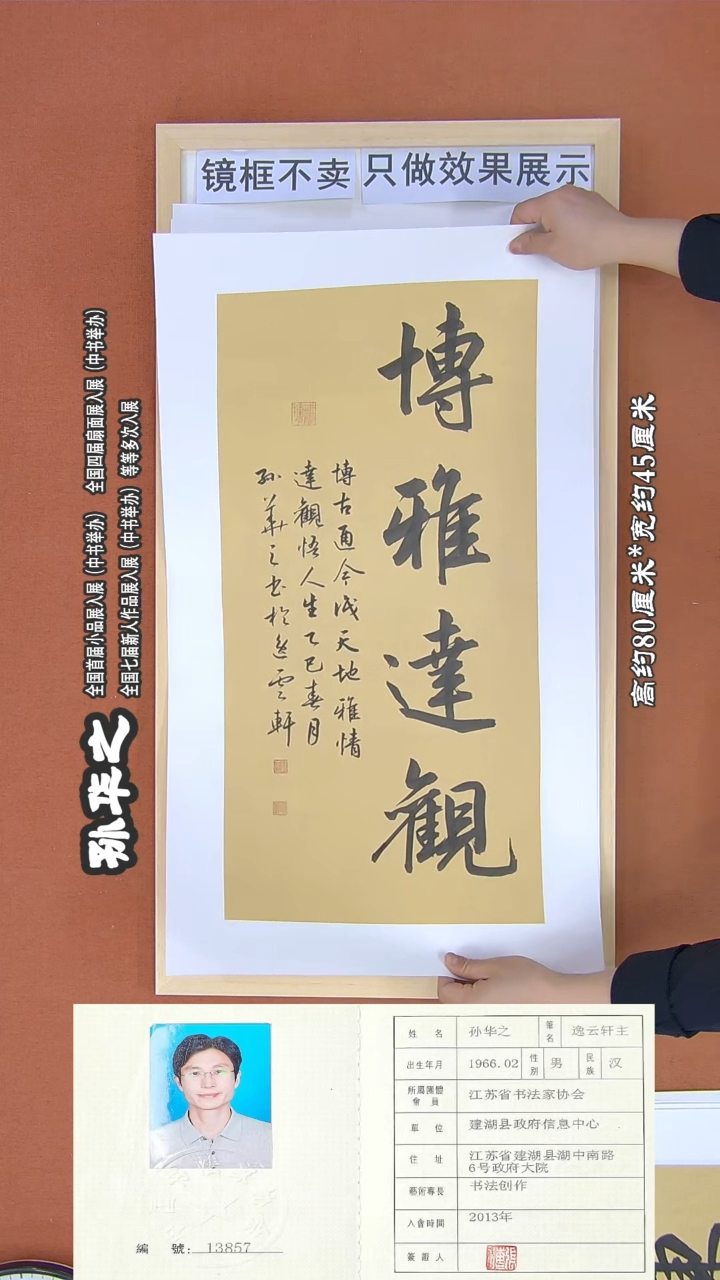 镜框不卖 只做效果展示
博雅達觀
博古通今成天地雅情
達觀悟人生乙巳春月
孙华之书於逸雲軒
全国首届小品展入展（中书举办） 全国四届扇面展入展（中书举办）
全国七届新人作品展入展（中书举办）等等多次入展
孙华之
高约80厘米*宽约45厘米
姓名 孙华之 筆名 逸云轩主
出生年月 1966.02 性别 男 民族 汉
所屬團體會員 江苏省书法家协会
單位 建湖县政府信息中心
住址 江苏省建湖县湖中南路
6号政府大院
藝術專長 书法创作
入會時間 2013年
簽證人
編號：13857